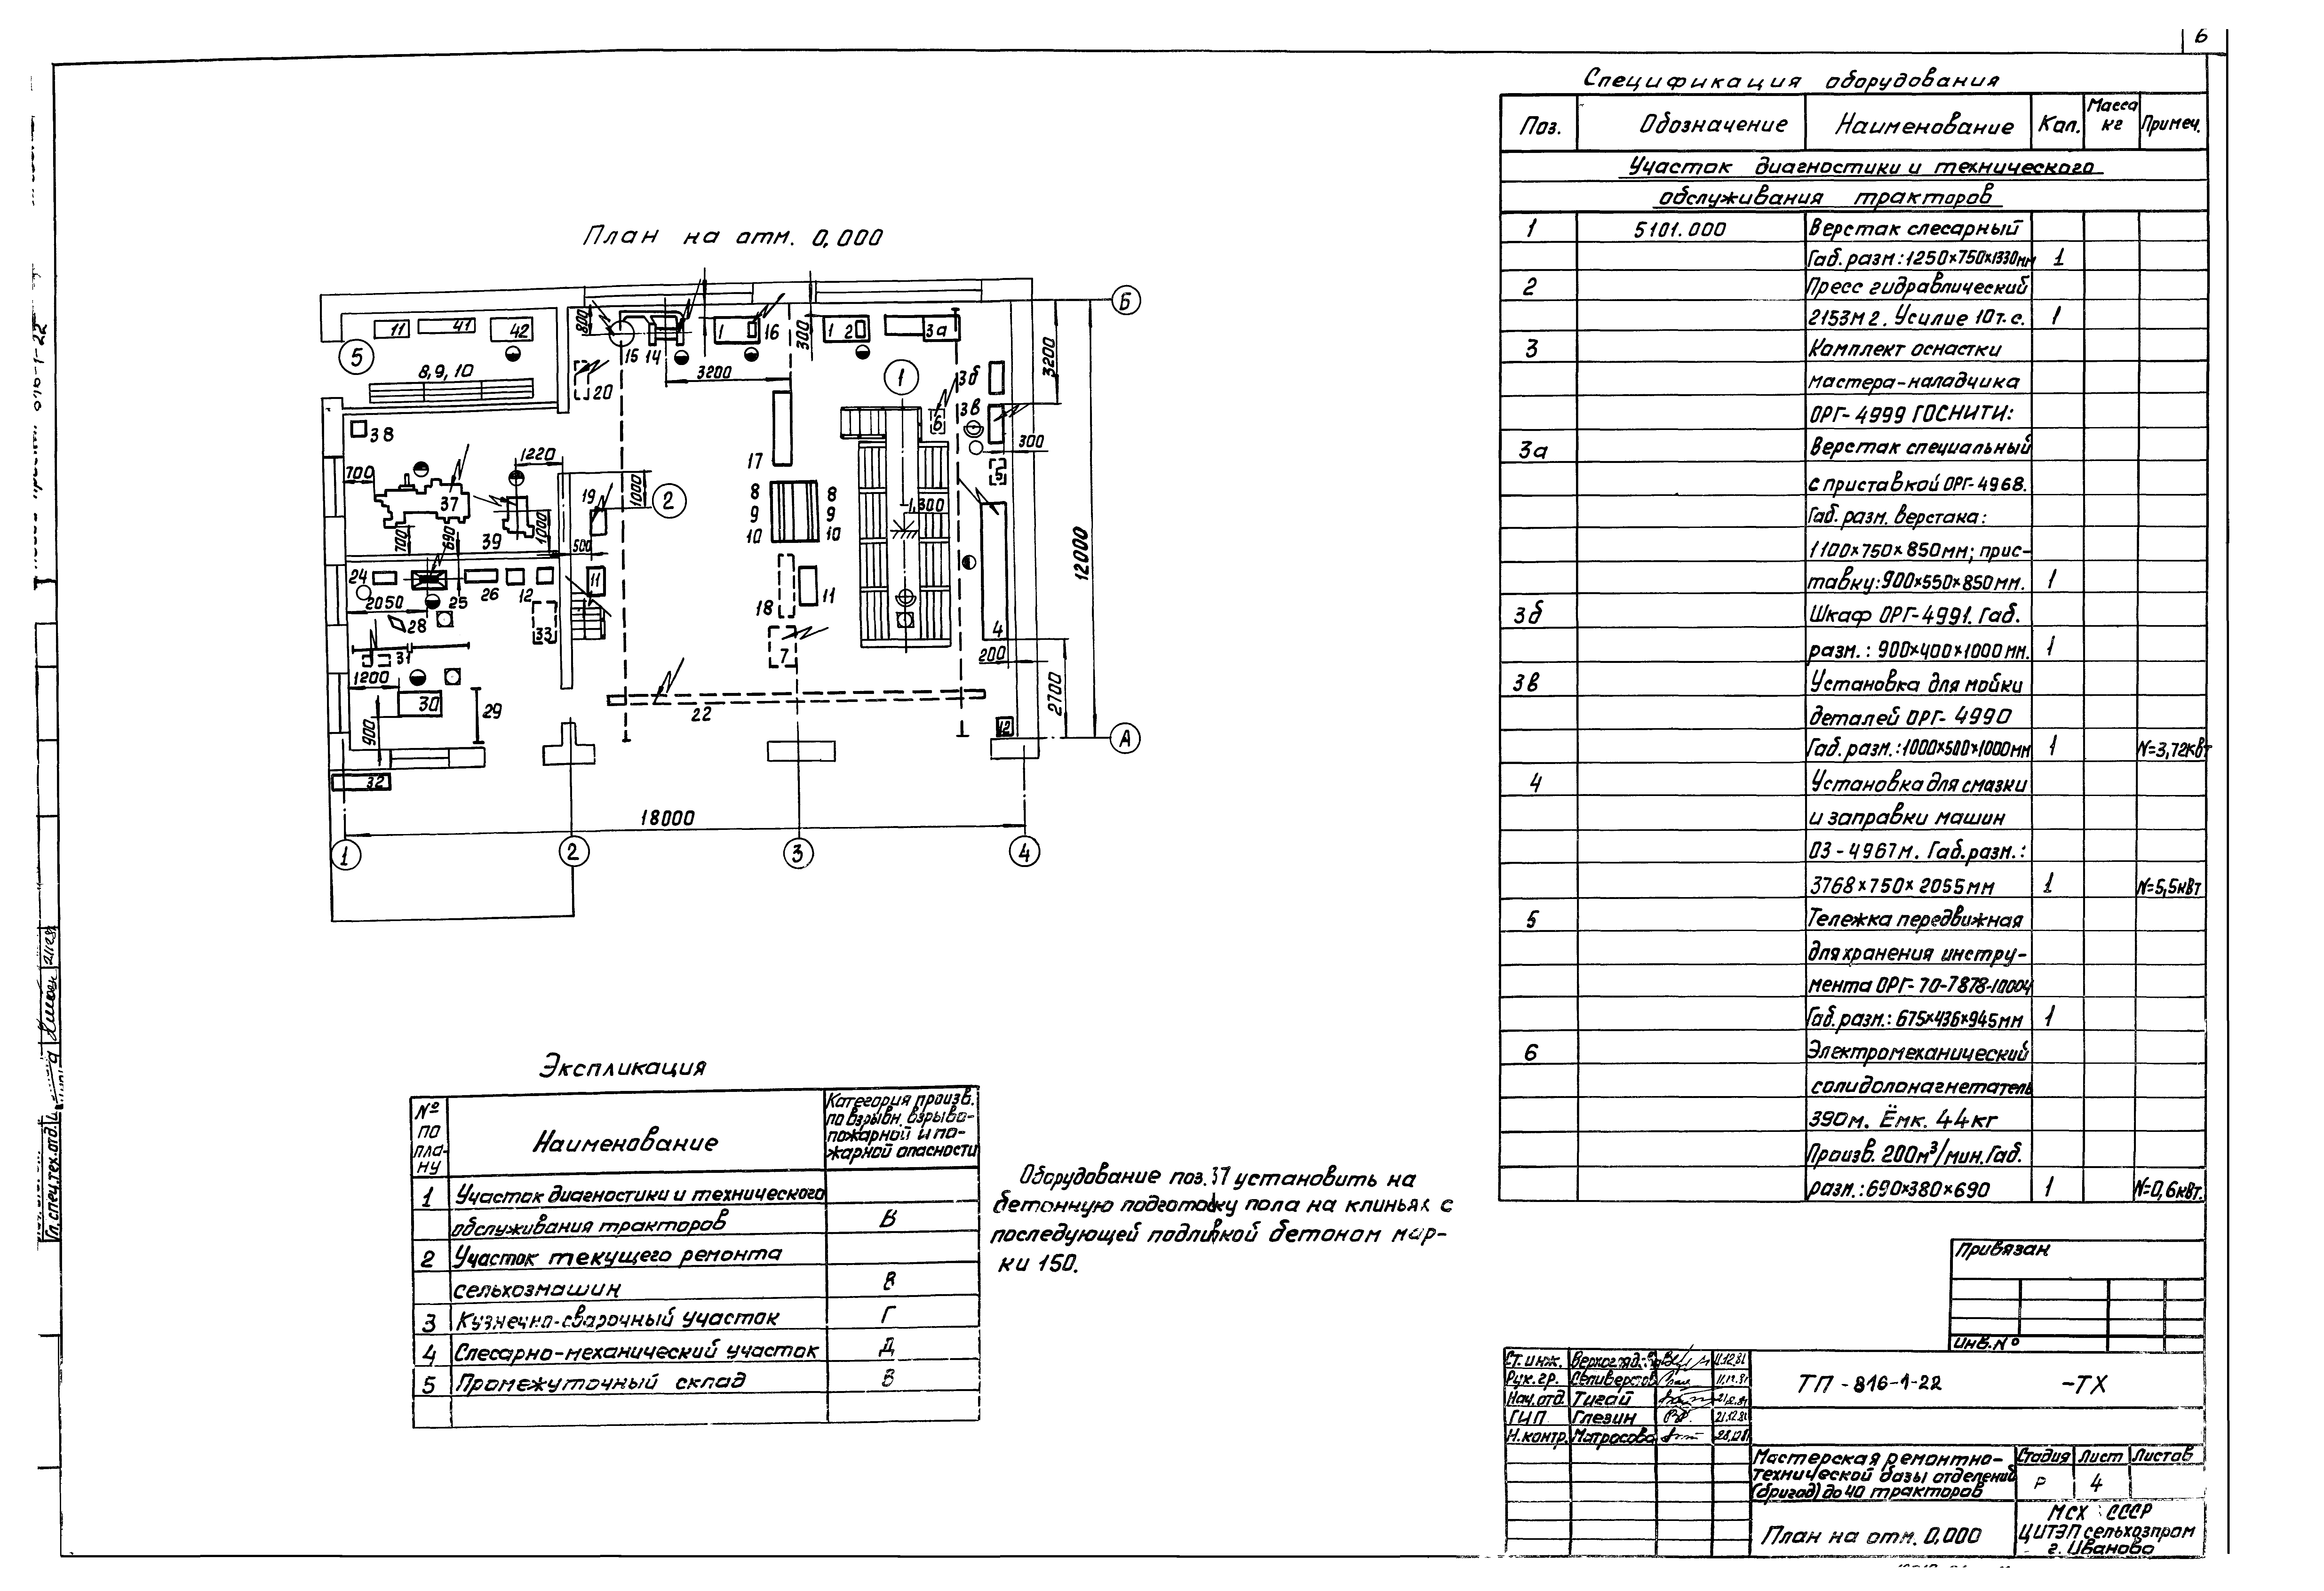 6
План на отм. 0,000
Б
А
1
2
3
4
5
1
2
11
41
42
8, 9, 10
38
700
37
1220
700
690
39
1000
500
19
1000
24
25
26
12
2050
28
33
31
1200
30
29
900
32
800
15 14
1
16
20
3200
300
1 2
3а
3б
3в
6
300
5
3200
17
8
9
10
8
9
10
1,300
11
18
11
7
4
200
22
12
2700
12000
18000
Экспликация
№ по плану
Наименование
Категория произв.
по взрывн. взрыво-
пожарной и по-
жарной опасности
1 Участок диагностики и технического
обслуживания тракторов В
2 Участок текущего ремонта
сельхозмашин В
3 Кузнечно-сварочный участок Г
4 Слесарно-механический участок Д
5 Промежуточный склад В
Оборудование поз. 37 установить на
бетонную подготовку пола на клиньях с
последующей подливкой бетоном мар-
ки 150.
Спецификация оборудования
Поз. Обозначение Наименование Кол. Масса кг Примеч.
Участок диагностики и технического
обслуживания тракторов
1 5101.000 Верстак слесарный
Габ. разм: 1250×750×1330мм 1
2 Пресс гидравлический
2153М2. Усилие 10т.с. 1
3 Комплект оснастки
мастера-наладчика
ОРГ-4999 ГОСНИТИ:
3а Верстак специальный
с приставкой ОРГ-4968.
Габ. разм. верстака:
1100×750×850мм; прис-
тавку: 900×550×850мм. 1
3б Шкаф ОРГ-4991. Габ.
разм.: 900×400×1000мм. 1
3в Установка для мойки
деталей ОРГ-4990
Габ. разм.: 1000×500×1000мм 1 N=3,72квт
4 Установка для смазки
и заправки машин
ОЗ-4967м. Габ. разм.:
3768×750×2055мм 1 N=5,5квт
5 Тележка передвижная
для хранения инстру-
мента ОРГ-70-7878-1000ч
Габ. разм.: 675×436×945мм 1
6 Электромеханический
солидолонагнетатель
390м. Ёмк. 44кг
Произв. 200м³/мин. Габ.
разм.: 690×380×690 1 N=0,6квт.
Привязан
Инв. №
Ст. инж. 11.12.81
Рук. гр. Селиверстов 11.12.81
Нач. отд. Тугай 21.12.81
ГИП Глезин 21.12.81
Н. контр. Матросова 28.12.81
ТП-816-1-22 -ТХ
Мастерская ремонтно-
технической базы отделений
(бригад) до 40 тракторов
Стадия Лист Листов
Р 4
План на отм. 0,000
МСХ СССР
ЦИТЭП сельхозпром
г. Иваново
Гл. спец. тех. отд.